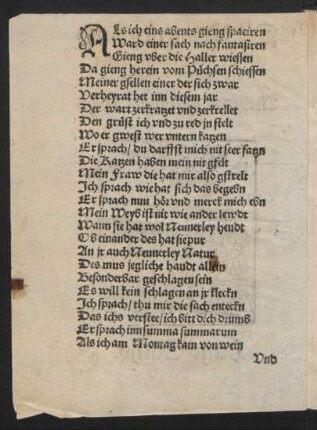 ALs ich eins abents gieng spaciren
Ward einer sach nach fantasiren
Gieng vber die Haller wiessen
Da gieng herein vom Püchsen schiessen
Meiner gsellen einer der sich zwar
Verheyrat het inn diesem jar
Der wart zerkratzet vnd zerkrellet
Den grüst ich vnd zu red jn stelt
Wo er gwest wer vntern katzen
Er sprach / du darffst mich nit seer fatzn
Die Katzen haben mein nit gfelt
Mein Fraw die hat mir also gstrelt
Ich sprach wie hat sich das begebn
Er sprach nun hör vnd merck mich ebn
Mein Weyb ist nit wie ander lewdt
Wann sie hat wol Neunerley heudt
Ob einander des hat sie pur
An jr auch Neunerley Natur
Des mus jegliche haudt allein
Besonderbar geschlagen sein
Es will kein schlagen an jr kleckn
Ich sprach / thu mir die sach entecktn
Das ichs verstee / ich bitt dich drumb
Er sprach inn summa summarum
Als ich am Montag kam von wein
Vnd